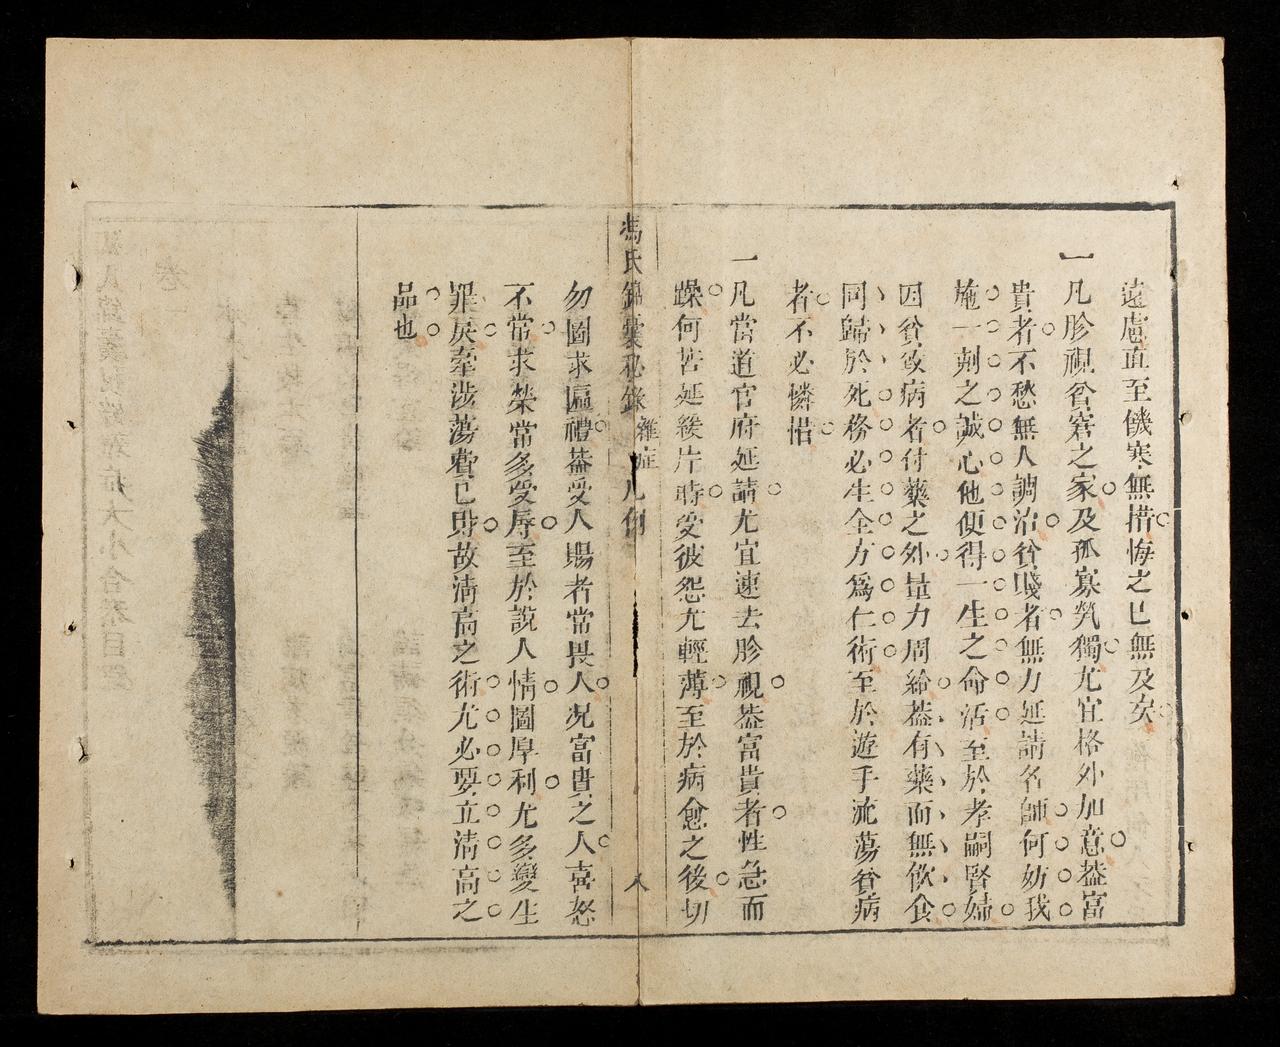 遠慮直至饑寒無措悔之已無及矣
一凡胗視貧窘之家及孤寡煢獨尤宜格外加意葢富
貴者不愁無人調治貧賤者無力延請名師何妨我
施一劑之誠心他便得一生之命活至於孝嗣賢婦
因貧致病者付藥之外量力周給葢有藥而無飲食
同歸於死務必生全方爲仁術至於遊手流蕩貧病
者不必憐惜
一凡當道官府延請尤宜速去胗視葢富貴者性急而
躁何苦延緩片時受彼怨尤輕薄至於病愈之後切
馮氏錦囊秘錄
雜症
凡例
八
勿圖求匾禮葢受人賜者常畏人况富貴之人喜怒
不常求榮常多受辱至於說人情圖厚利尤多變生
罪戾牽涉蕩費己財故清高之術尤必要立清高之
品也